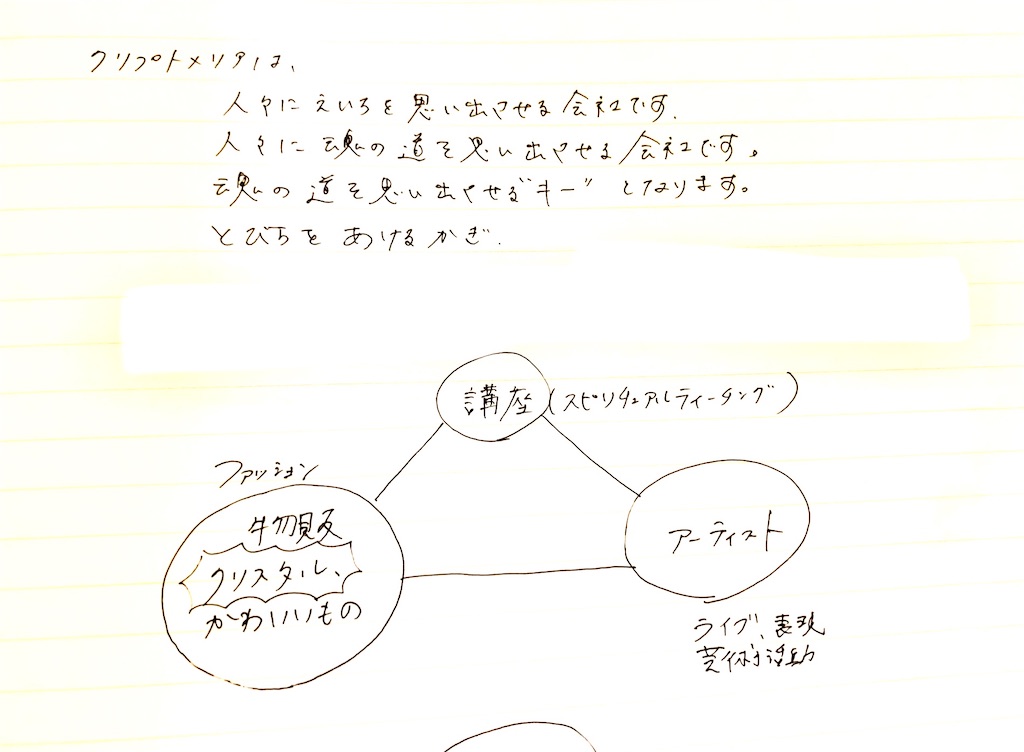 クリプトメリアは、
人々にえいちを思い出させる会社です.
人々に魂の道を思い出させる会社です。
魂の道を思い出させる"キー"となります。
とびらをあけるかぎ.
講座(スピリチュアルティーチング)
ファッション
物販
クリスタル、
かわいいもの
アーティスト
ライブ、表現
芸術的活動